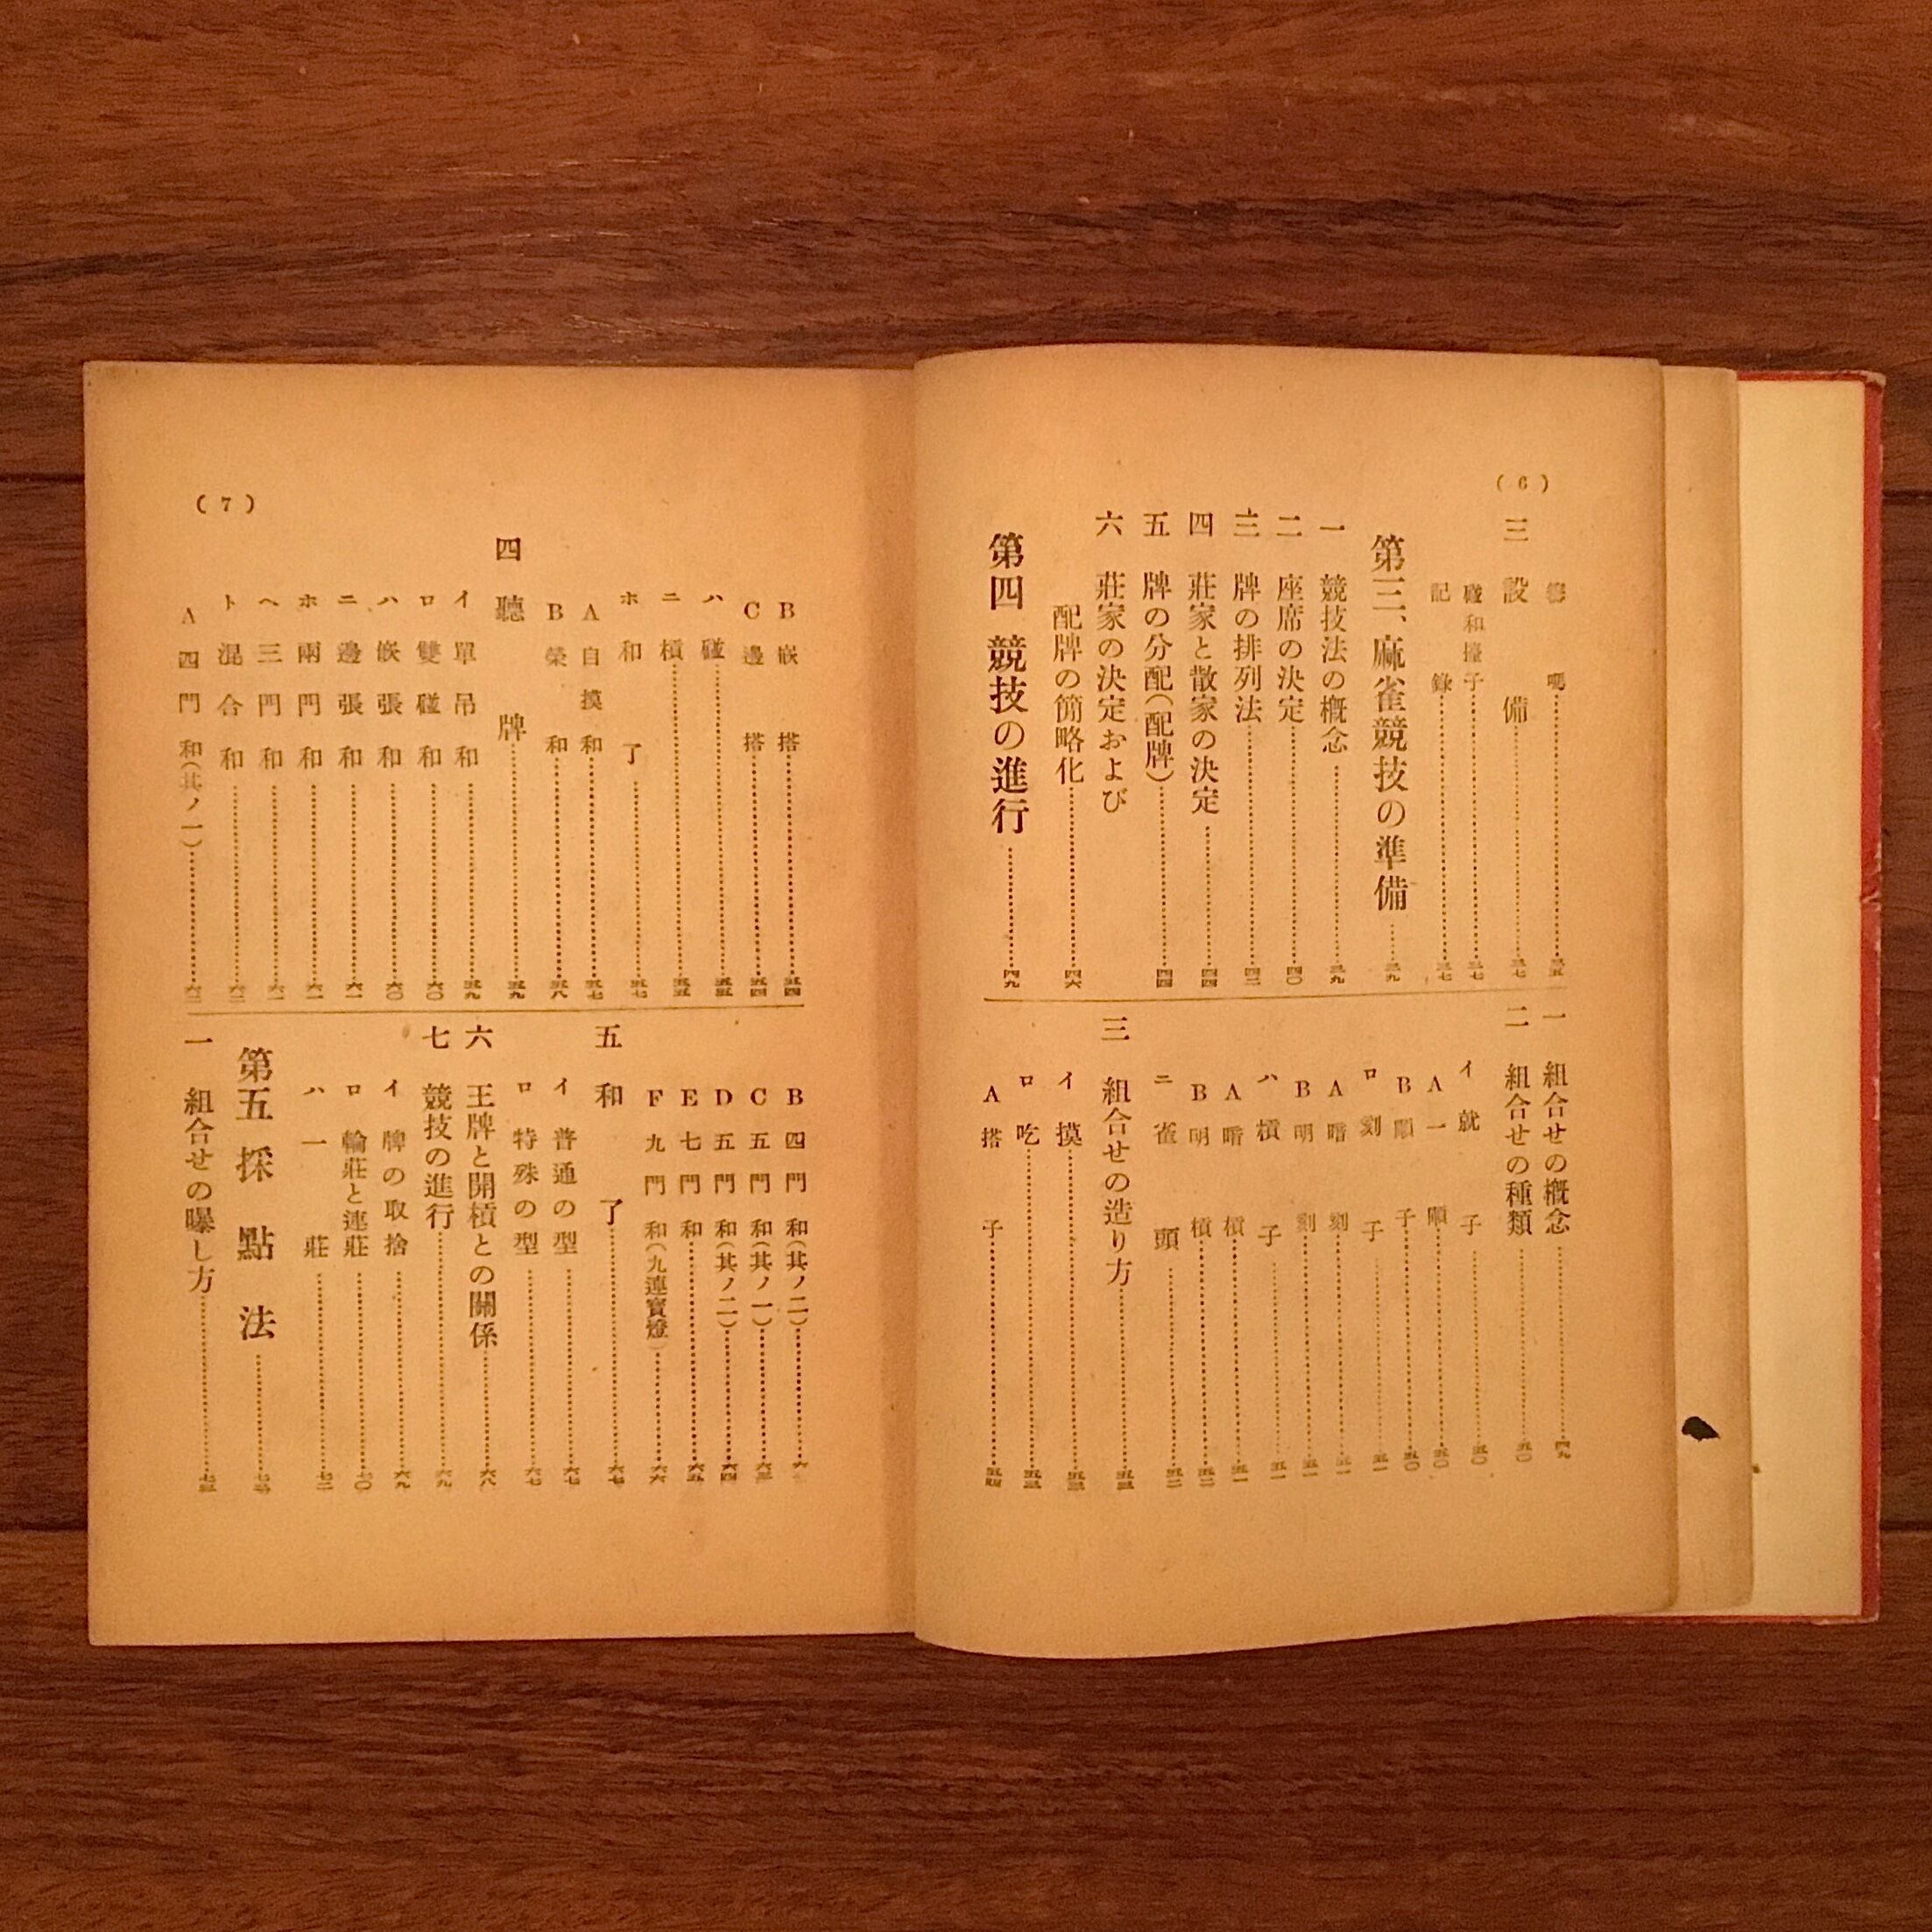 (6)
籌碼……三五
三 設備……三七
碰和擡子……三七
記錄……三七
第三、麻雀競技の準備……三九
一 競技法の概念……三九
二 座席の決定……四〇
三 牌の排列法……四二
四 莊家と散家の決定……四四
五 牌の分配(配牌)……四四
六 莊家の決定および
配牌の簡略化……四六
第四 競技の進行……四九
一 組合せの概念……四九
二 組合せの種類……五〇
イ 就子……五〇
A 一順……五〇
B 順子……五〇
ロ 刻子……五一
A 暗刻……五一
B 明刻……五一
ハ 槓子……五一
A 暗槓……五一
B 明槓……五二
ニ 雀頭……五二
三 組合せの造り方……五三
イ 摸……五三
ロ 吃……五三
A 搭子……五四
(7)
B 嵌搭……五四
C 邊搭……五四
ハ 碰……五五
ニ 槓……五五
ホ 和了……五七
A 自摸和……五七
B 榮和……五八
四 聽牌……五九
イ 單吊和……五九
ロ 雙碰和……六〇
ハ 嵌張和……六〇
ニ 邊張和……六一
ホ 兩門和……六一
ヘ 三門和……六一
ト 混合和……六二
A 四門和(其ノ一)……六二
B 四門和(其ノ二)……六
C 五門和(其ノ一)……六三
D 五門和(其ノ二)……六四
E 七門和……六五
F 九門和(九連寶燈)……六六
五 和了……六七
イ 普通の型……六七
ロ 特殊の型……六七
六 王牌と開槓との關係……六八
七 競技の進行……六九
イ 牌の取捨……六九
ロ 輪莊と連莊……七〇
ハ 一莊……七二
第五 採點法……七三
一 組合せの曝し方……七三